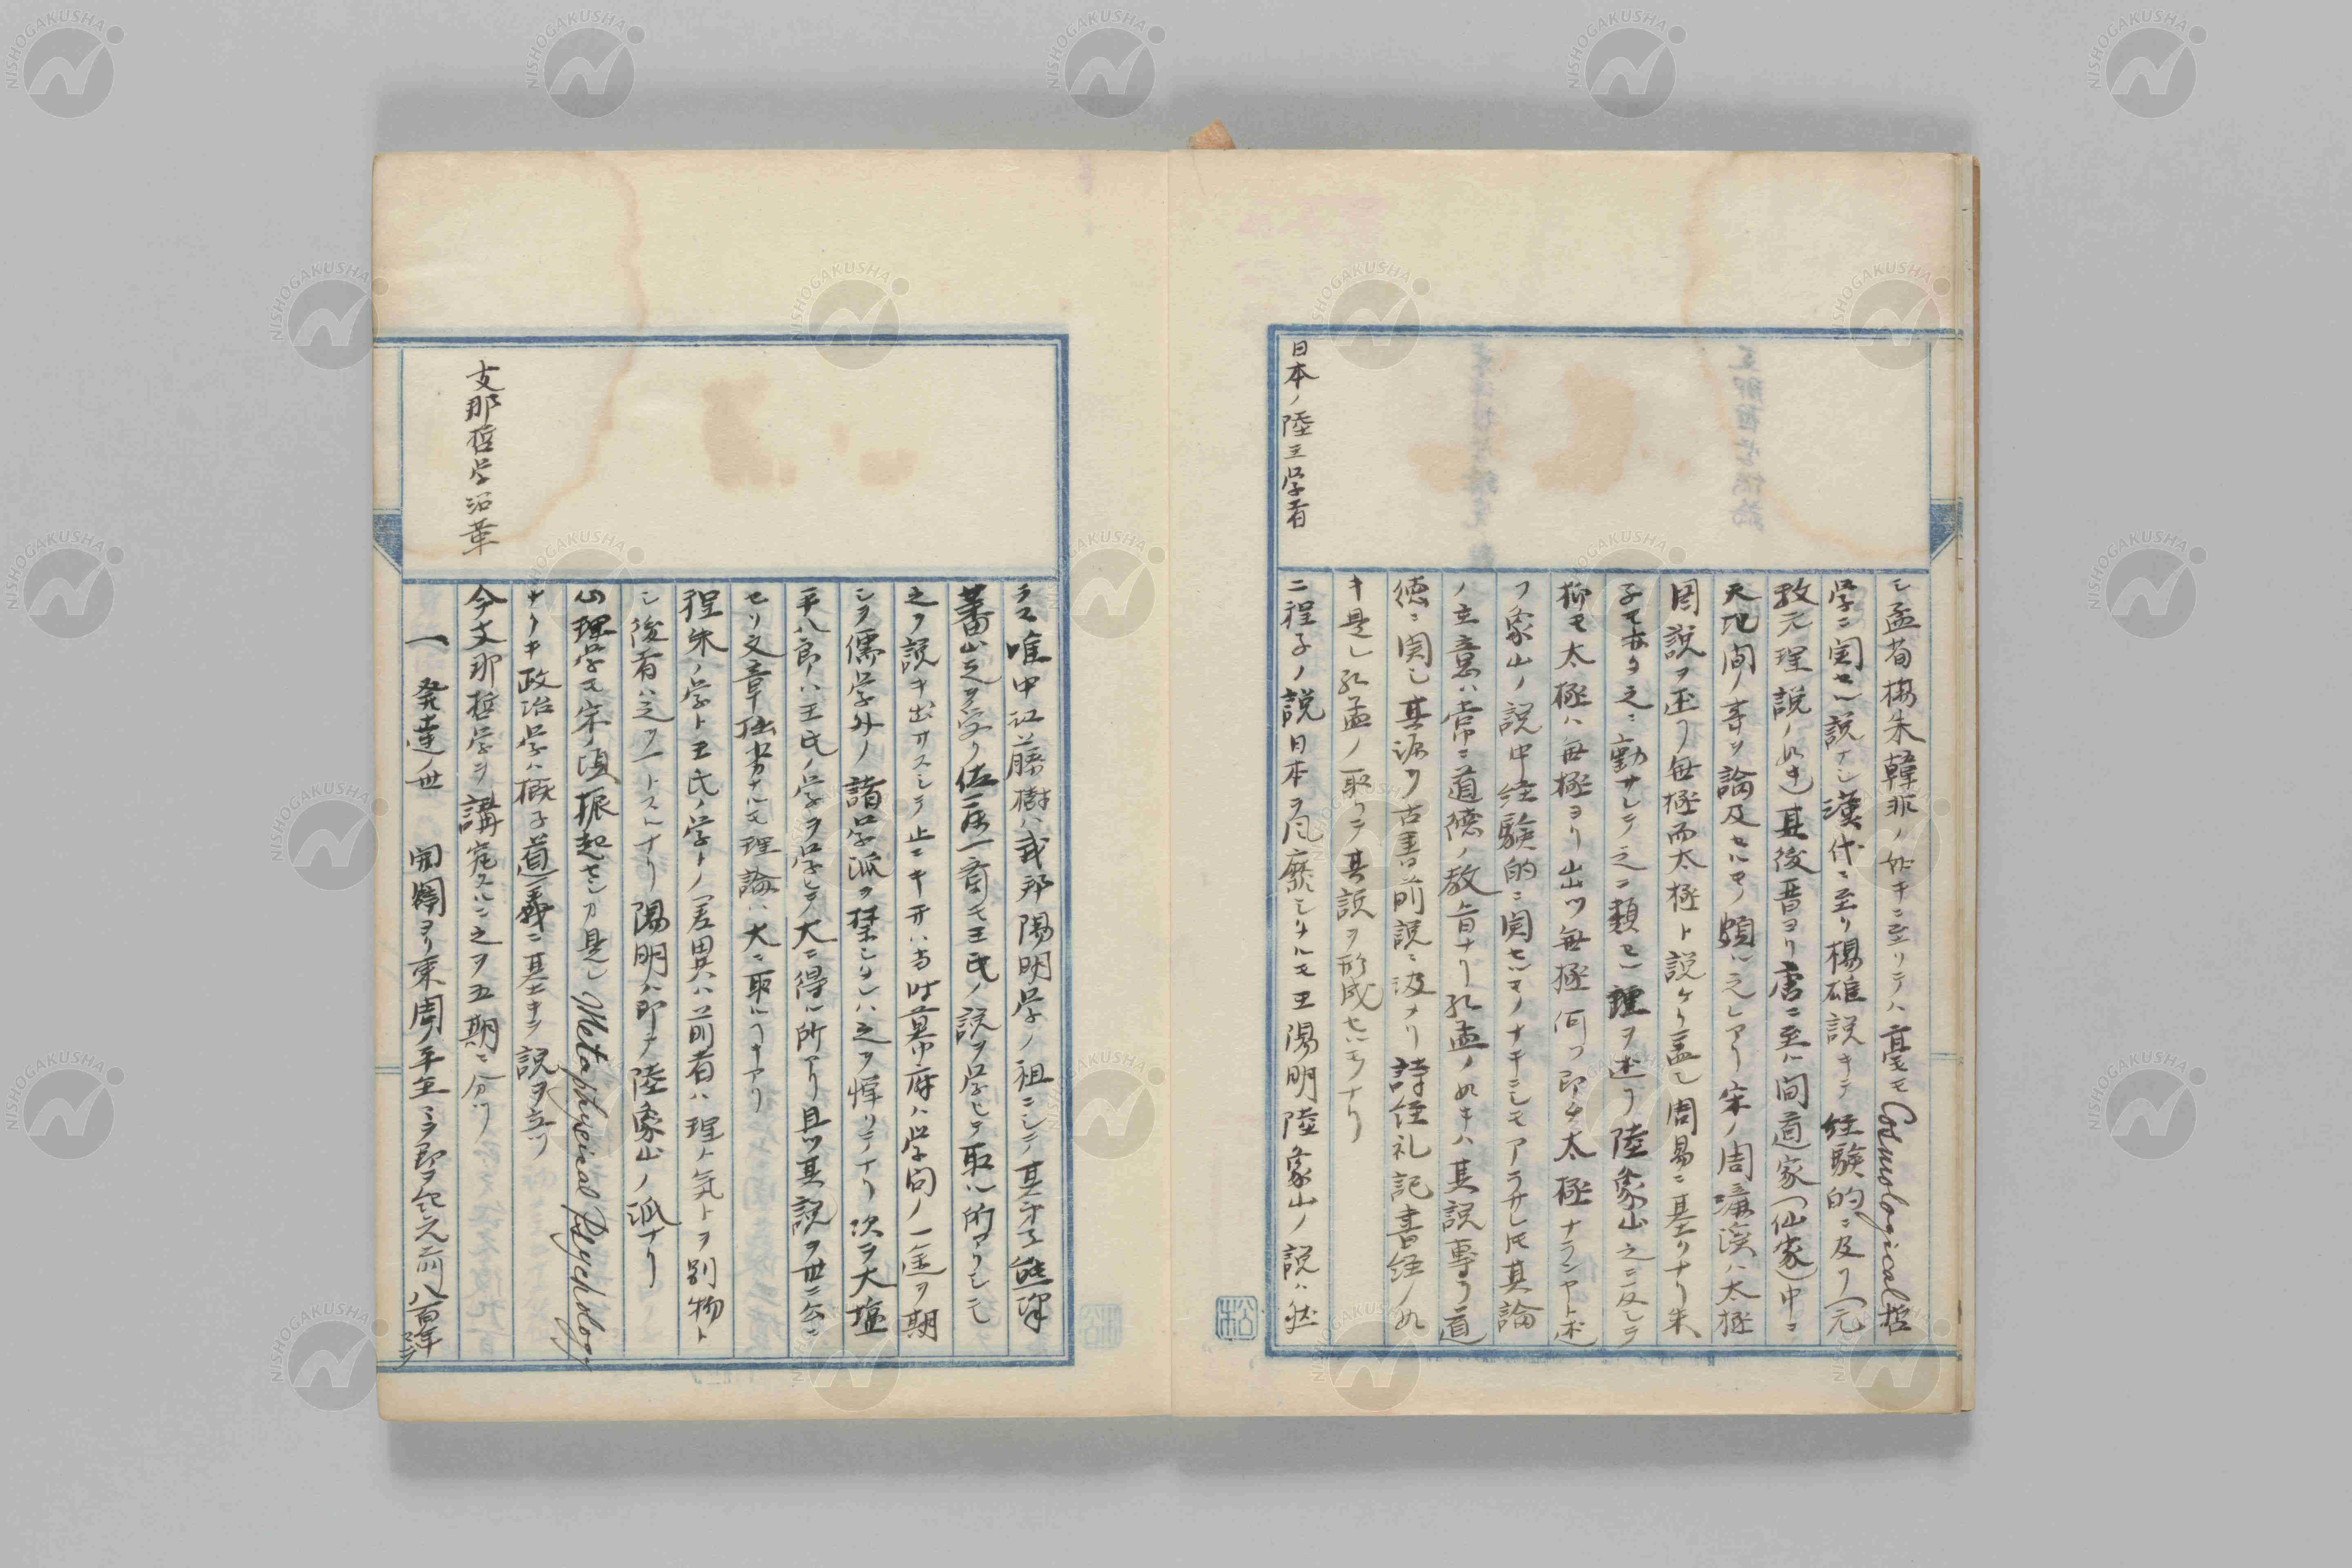 シ孟荀楊朱韓非ノ如キニ至リテハ毫モCosmological哲
学ニ関セル説ナシ漢代ニ至リ楊雄説キテ経験的ニ及フ(元
教元理説ノ如キ)其後晋ヨリ唐ニ至ル間道家(仙家)中ニ
天地間ノ事ヲ論及セルモノ頗ル之レアリ宋ノ周濂渓ハ太極
図説ヲ述フ無極而太極ト説ケリ蓋シ周易ニ基クナリ朱
子モ亦タ之ニ勤サレテ之ニ類セル理ヲ述フ陸象山之ニ反シテ
抑モ太極ハ無極ヨリ出ツ無極何ソ即チ太極ナランヤト述
フ象山ノ説中経験的ニ関セルモノナキニシモアラサレ圧其論
ノ主意ハ常ニ道徳ノ教旨ナリ孔孟ノ如キハ其説専ラ道
徳ニ関シ其源ヲ古書前説ニ汲ナリ詩経礼記書経ノ如
キ是レ孔孟ノ取リテ其説ヲ形成セルモノナリ
日本ノ陸王学者
二程子ノ説日本ヲ風靡シタルモ王陽明陸象山ノ説ハ然
ラス唯中江藤樹ハ我邦陽明学ノ祖ニシテ其弟子熊澤
蕃山之ヲ受ク佐藤一斎モ王氏ノ説ヲ学ヒテ取ル所アリシモ
之ヲ説キ出サスシテ止ニキ 当時幕府ハ学問ノ一途ヲ期
シヲ儒学外ノ諸学派ヲ禁シタレハ之ヲ憚リテナリ次ヲ大塩
平八郎ハ王氏ノ学ヲ学ヒテ大ニ得ル所アリ且ツ其説ヲ世ニ公ニ
セリ文章拙劣ナルモ理論ハ大ニ取ルヘキアリ
程朱ノ学ト王氏ノ学トノ差異ハ前者ハ理ト気トヲ別物ト
シ後者ハ之ヲ一トスルナリ陽明ハ即チ陸象山ノ派ナリ
心理学モ宋ノ頃振起セシカ是レMetaphysical Psychology
ナリキ政治学ハ概子道義ニ基キテ説ヲ立ツ
支那哲学沿革
今支那哲学ヲ講究スルニ之ヲ五期ニ分ツ
一 発達ノ世 開闢ヨリ東周ノ平王ニテ即ヲ紀元前八百年マテ
松
NISHOGAKUSHA